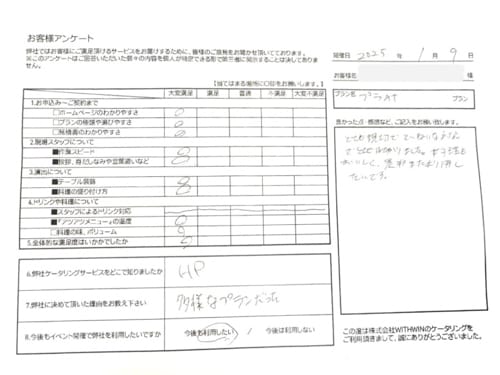 お客様アンケート
弊社ではお客様にご満足頂けるサービスをお届けするために、皆様のご意見をお聞かせ頂いております。
※このアンケートはご回答いただいた個々の内容を個人が特定できる形で第三者に開示することは決してありません。
【当てはまる箇所に○印をお願いします。】
大変満足 満足 普通 不満足 大変不満足
1.お申込み～ご契約まで
□ホームページのわかりやすさ
□プランの種類や選びやすさ
□見積書のわかりやすさ
2.現場スタッフについて
■作業スピード
■挨拶、身だしなみや言葉遣いなど
3.演出について
■テーブル装飾
■料理の盛り付け方
4.ドリンクや料理について
■スタッフによるドリンク対応
■『アツアツメニュー』の温度
□料理の味、ボリューム
5.全体的な満足度はいかがでしたか
6.弊社ケータリングサービスをどこで知りましたか
HP
7.弊社に決めて頂いた理由をお教え下さい
多様なプランだった
8.今後もイベント開催で弊社を利用したいですか
今後も利用したい / 今後は利用しない
開催日 2025 年 1 月 9 日
お客様名 様
プラン名 プラチナ プラン
良かった点・感想など、ご記入をお願い致します。
とても親切で
たいです。
この度は株式会社WITHWINのケータリングを
ご利用頂きまして、誠にありがとうございました。